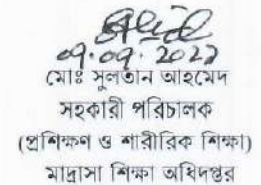 ০৭.০৭.২০২২
মোঃ সুলতান আহমেদ
সহকারী পরিচালক
(প্রশিক্ষণ ও শারীরিক শিক্ষা)
মাদ্রাসা শিক্ষা অধিদপ্তর